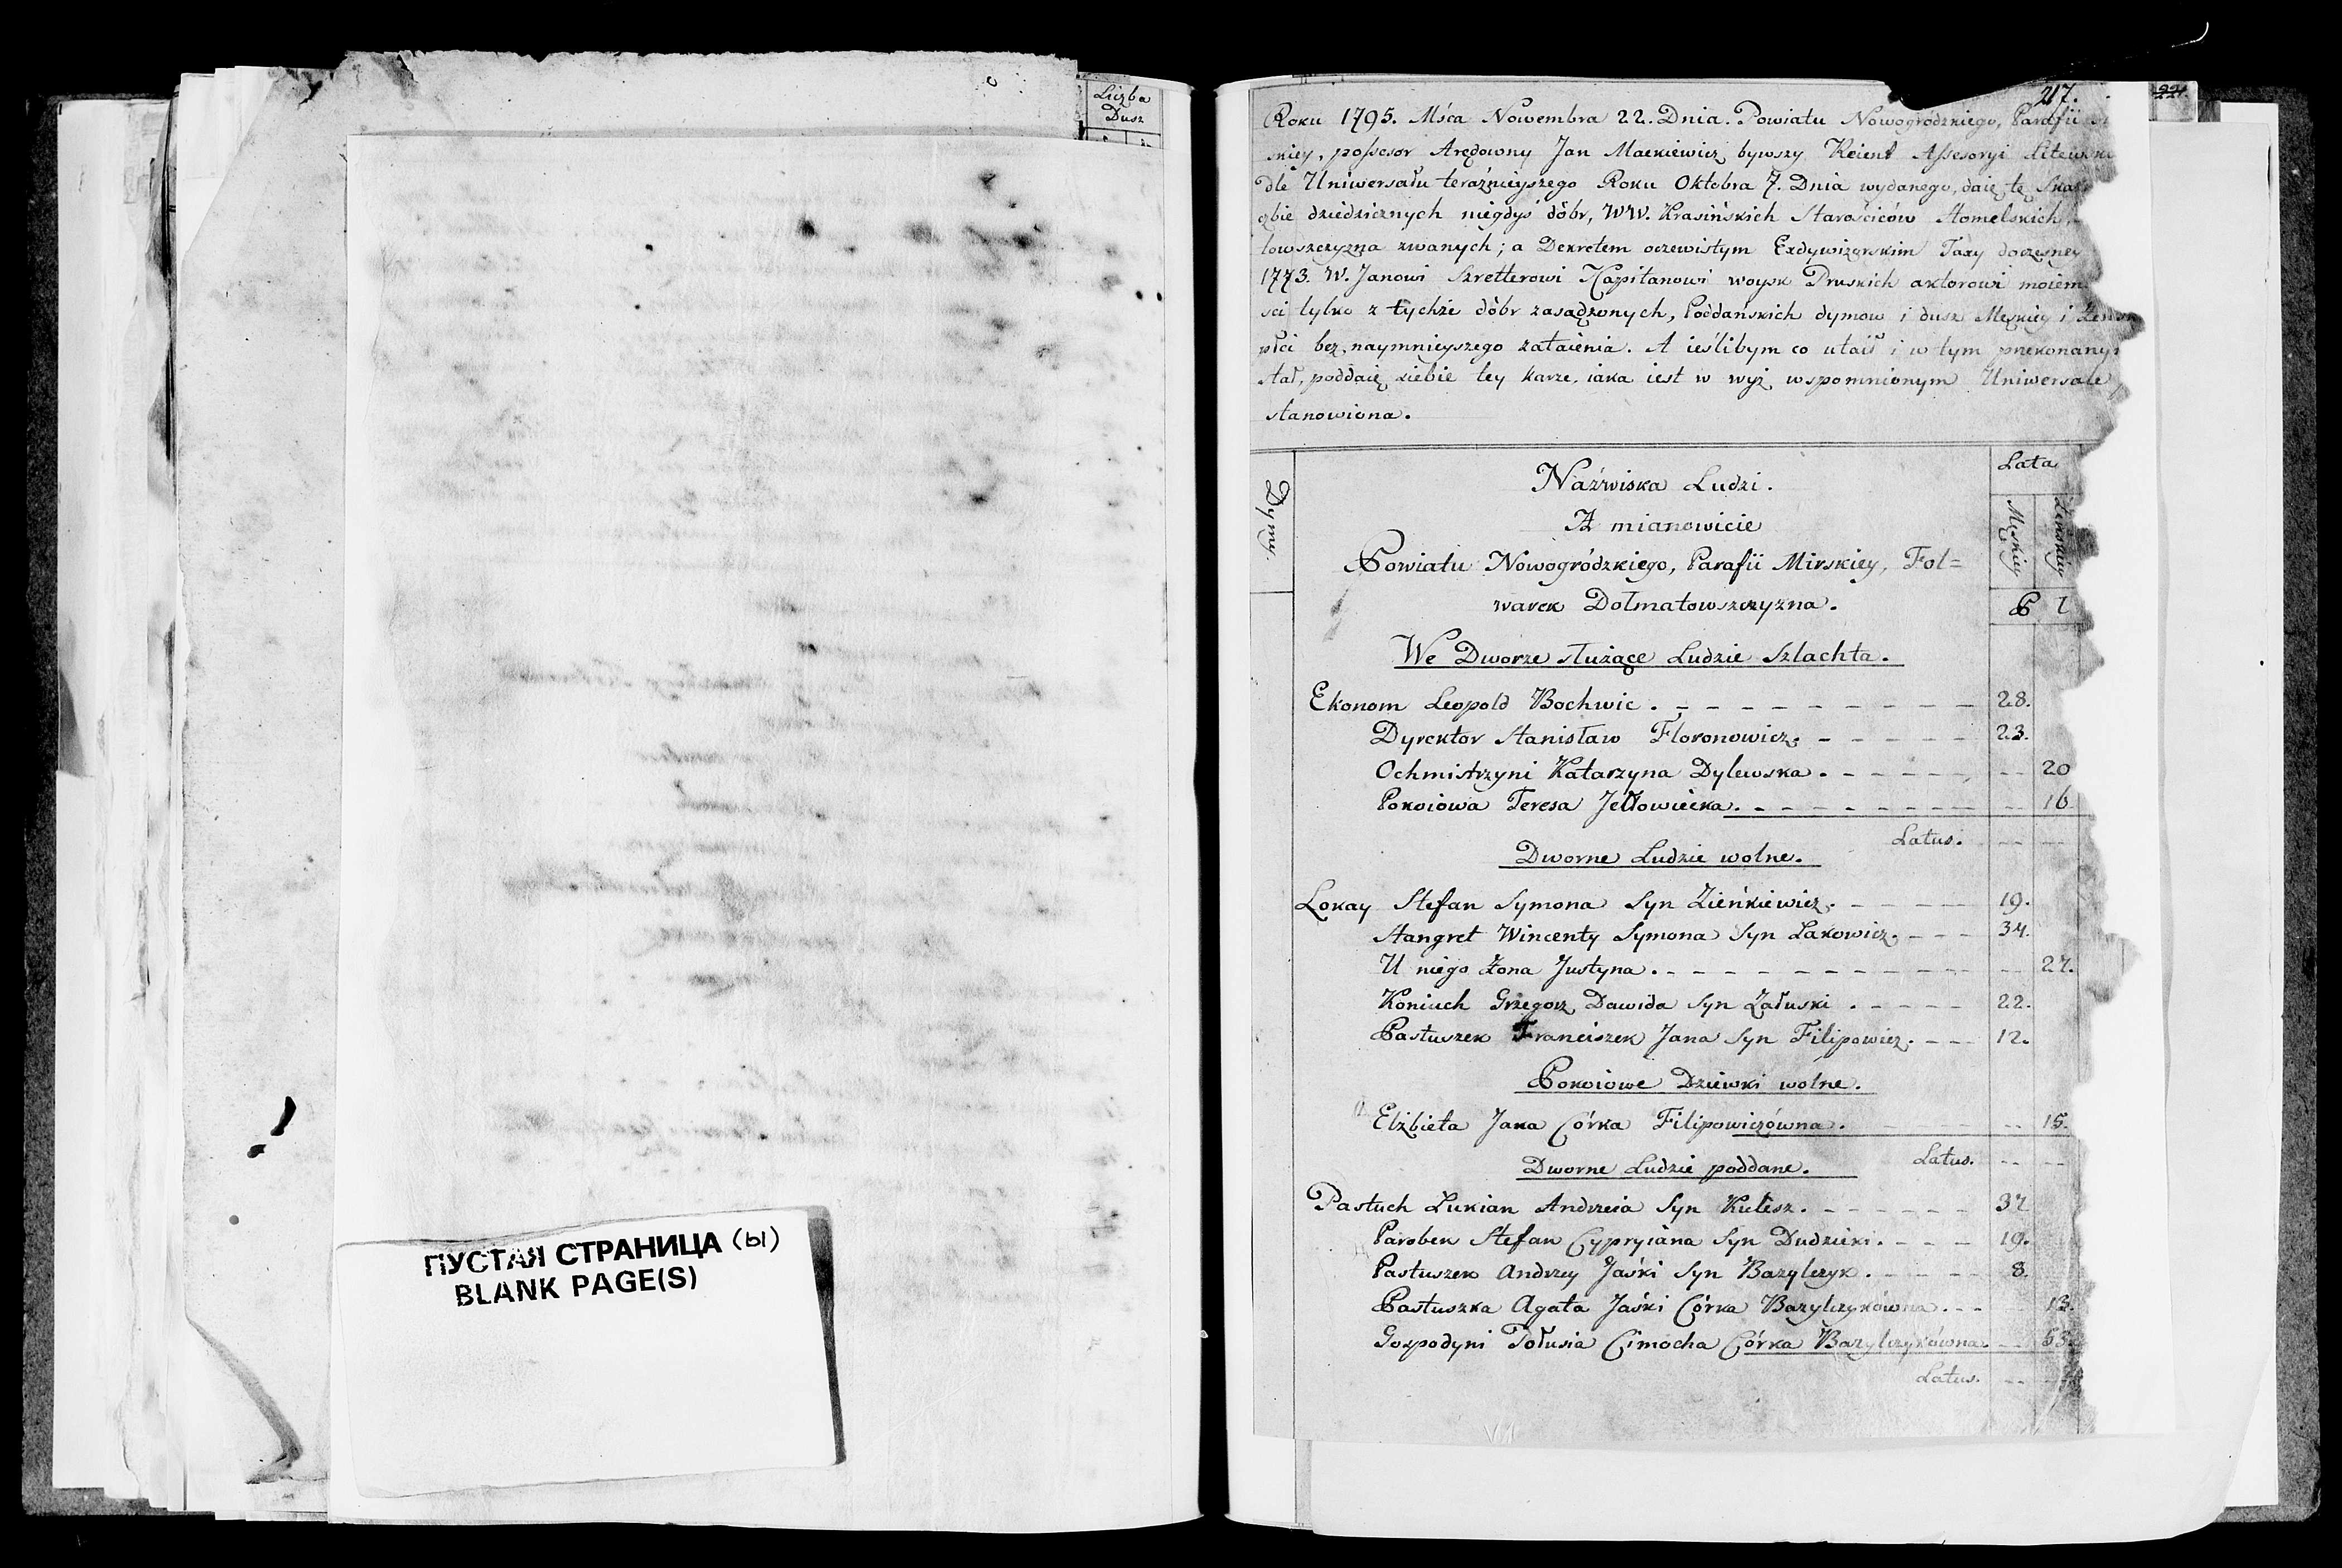 Liczba
Dusz
ПУСТАЯ СТРАНИЦА (ы)
BLANK PAGE(S)
217.
221.
Roku 1795. Mśca Nowembra 22. Dnia. Powiatu Nowogródzkiego, Parafii
skiey, possesor Arędowny Jan Mackiewicz bywszy Reient Assesoryi Litewsk
dle Uniwersału teraźnieyszego Roku Oktobra 7. Dnia wydanego, daię tę Skaz
czbie dziedzicznych niegdyś dóbr, WW. Krasińskich Starościców Stomelskich,
towszczyzna zwanych; a Dekretem oczewistym Exdywizorskim Taxy doczesney
1773. W. Janowi Szretterowi Kapitanowi woysk Pruskich aktorowi moiem
ści tylko z tychże dóbr zasądzonych, Poddańskich dymow i dusz Męskiey i Żeń
płci bez naymnieyszego zataienia. A ieślibym co utaił i w tym przekonany
stał, poddaię siebie tey karze, iaka iest w wyż wspomnionym Uniwersale
stanowiona.
Dymy.
Náźwiska Ludzi.
Lata
A mianowicie
Męskiey
Żeńskiey
Powiatu Nowogródzkiego, Parafii Mirskiey, Fol=
warek Dołmatowszczyzna.
P ł
We Dworze służące Ludzie Szlachta.
Ekonom Leopold Bochwic. - - - - - - - - - 28.
Dyrektor Stanisław Floronowicz. - - - - - 23.
Ochmistrzyni Katarzyna Dylewska. - - - - - - - 20
Pokoiowa Teresa Jełłowiecka. - - - - - - - - 16
Latus. -- --
Dworne Ludzie wolne.
Lokay Stefan Symona Syn Zieńkiewicz. - - - - - 19.
Stangret Wincenty Symona Syn Łakowicz. - - - 34.
U niego Żona Justyna. - - - - - - - - - - - 27.
Koniuch Grzegorz Dawida Syn Załuski. - - - - 22.
Pastuszek Franciszek Jana Syn Filipowicz. - - - 12.
Pokoiowe Dziewki wolne.
Elżbieta Jana Córka Filipowiczówna. - - - - -- 15.
Latus. -- --
Dworne Ludzie poddane.
Pastuch Lukian Andrzeia Syn Kulesz. - - - - - - 37
Parobek Stefan Cypryiana Syn Dudzicki. - - - - 19.
Pastuszek Andrzey Jaśki Syn Bazylczyk. - - - - 8.
Pastuszka Agata Jaśki Córka Bazylczykówna. - - - 13.
Gospodyni Tołusia Cimocha Córka Bazylczykówna. - - 63.
Latus. -- --